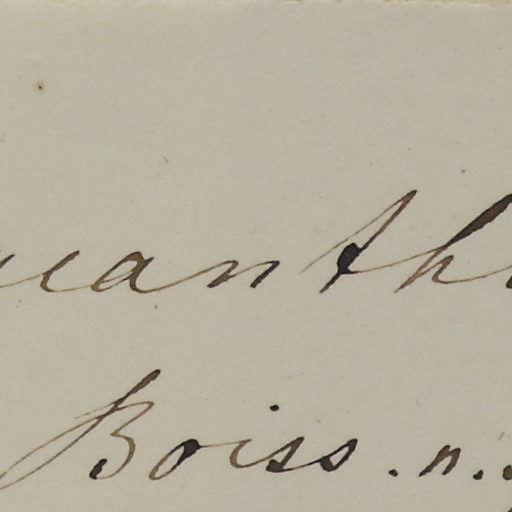 acanth
Boiss. n.